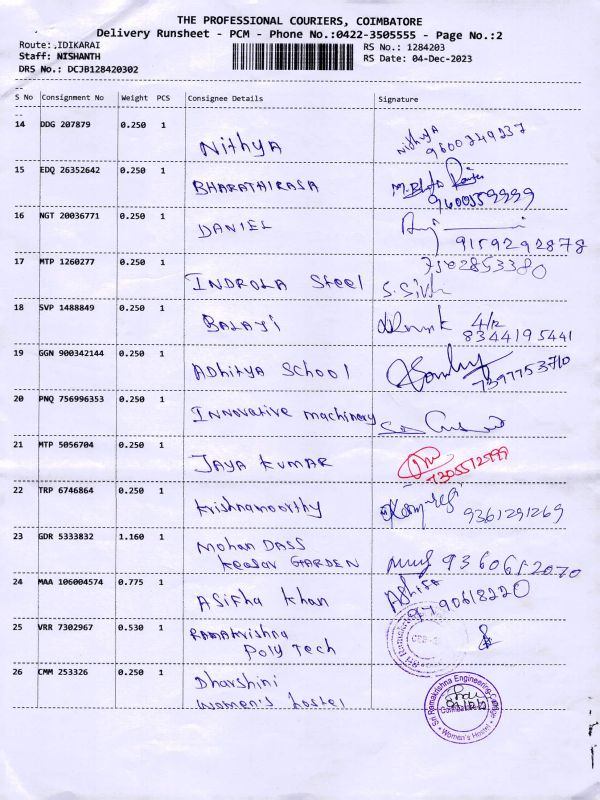 THE PROFESSIONAL COURIERS, COIMBATORE
Delivery Runsheet - PCM - Phone No.:0422-3505555 - Page No.:2
Route: .IDIKARAI
RS No.: 1284203
Staff: NISHANTH
RS Date: 04-Dec-2023
DRS No.: DCJB128420302
S No Consignment No Weight PCS Consignee Details Signature
14 DDG 207879 0.250 1 Nithya Nithya
9600349237
15 EDQ 26352642 0.250 1 BHARATHIRASA
9600559999
16 NGT 20036771 0.250 1 DANIEL
9159292878
17 MTP 1260277 0.250 1 INDROLA Steel 7502853380
18 SVP 1488849 0.250 1 BALAJI 4/12
8344195441
19 GGN 900342144 0.250 1 ADhitya School
7397753710
20 PNQ 756996353 0.250 1 INNovative machinery
21 MTP 5056704 0.250 1 JAYA KUMAR
7305572999
22 TRP 6746864 0.250 1 Krishnamoorthy 9361291269
23 GDR 5333832 1.160 1 Mohan DASS
Keasav GARDEN 9360612070
24 MAA 106004574 0.775 1 ASifha Khan Ashifa
9790618220
25 VRR 7302967 0.530 1 Ramakrishna
Poly Tech
26 CMM 253326 0.250 1 Dharshini
Women's hostel
Sri Ramakrishna Engineering College
Women's Hostel